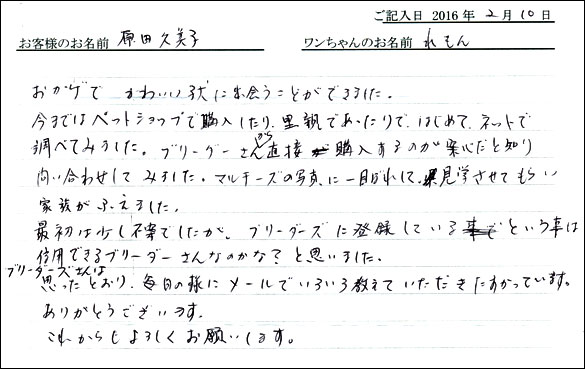 ご記入日 2016 年 2 月 10 日
お客様のお名前 原田久美子 ワンちゃんのお名前 れもん
おかげで かわいい子犬に出会うことができました。
今まではペットショップで購入したり、里親であったりで、はじめて、ネットで
調べてみました。ブリーダーさんから直接 購入するのが安心だと知り
問い合わせして みました。マルチーズの写真に一目ぼれして、見学させてもらい
家族がふえました。
最初は少し不安でしたが、ブリーダーズに登録している という事は
信用できるブリーダーさんなのかな？と思いました。
ブリーダーズさんは
思ったとおり、毎日の様にメールでいろいろ教えていただきたすかっています。
ありがとうございます。
これからもよろしくお願いします。